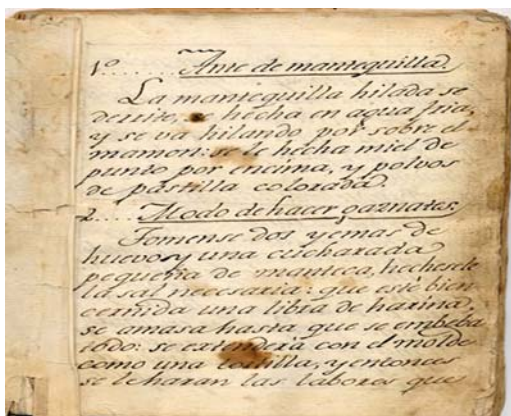 1º...... Ante de mantequilla.
La mantequilla hilada se
derrite, se hecha en agua fria,
y se va hilando por sobre el
mamon: se le hecha miel de
punto por encima, y polvos
de pastilla colorada.
2.... Modo de hacer gaznates.
Tomense dos yemas de
huevo, y una cucharada
pequeña de manteca, hechesele
la sal necesaria: que esté bien
cernida una libra de harina,
se amasa hasta que se embeba
todo: se extendera con el molde
como una tortilla, y entonces
se le haran las labores que